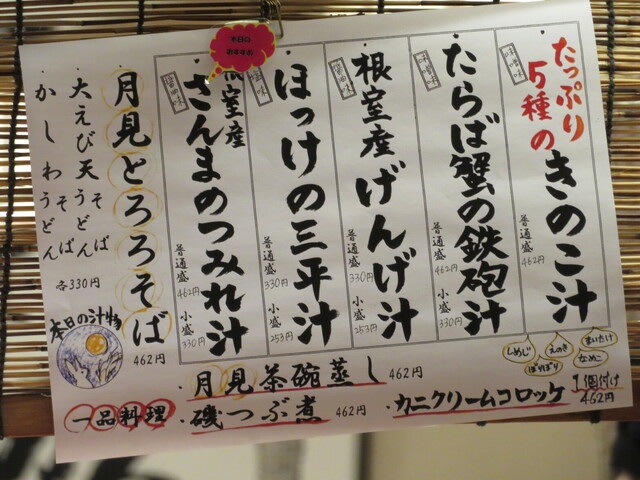 たっぷり
5種の
きのこ汁
味噌味
普通盛
462円
しめじ
えのき
まいたけ
ぼりぼり
なめこ
たらば蟹の鉄砲汁
味噌味
普通盛
462円
小盛
330円
根室産
げんげ汁
醤油味
普通盛
330円
小盛
253円
ほっけの三平汁
塩味
普通盛
330円
小盛
253円
本日の
おすすめ
根室産
さんまのつみれ汁
醤油味
普通盛
462円
小盛
330円
月見とろろそば
462円
大えび天うどん
そば
かしわうどん
そば
各330円
本日の汁物
月見茶碗蒸し 462円
一品料理
磯つぶ煮 462円
カニクリームコロッケ 1個付け
462円